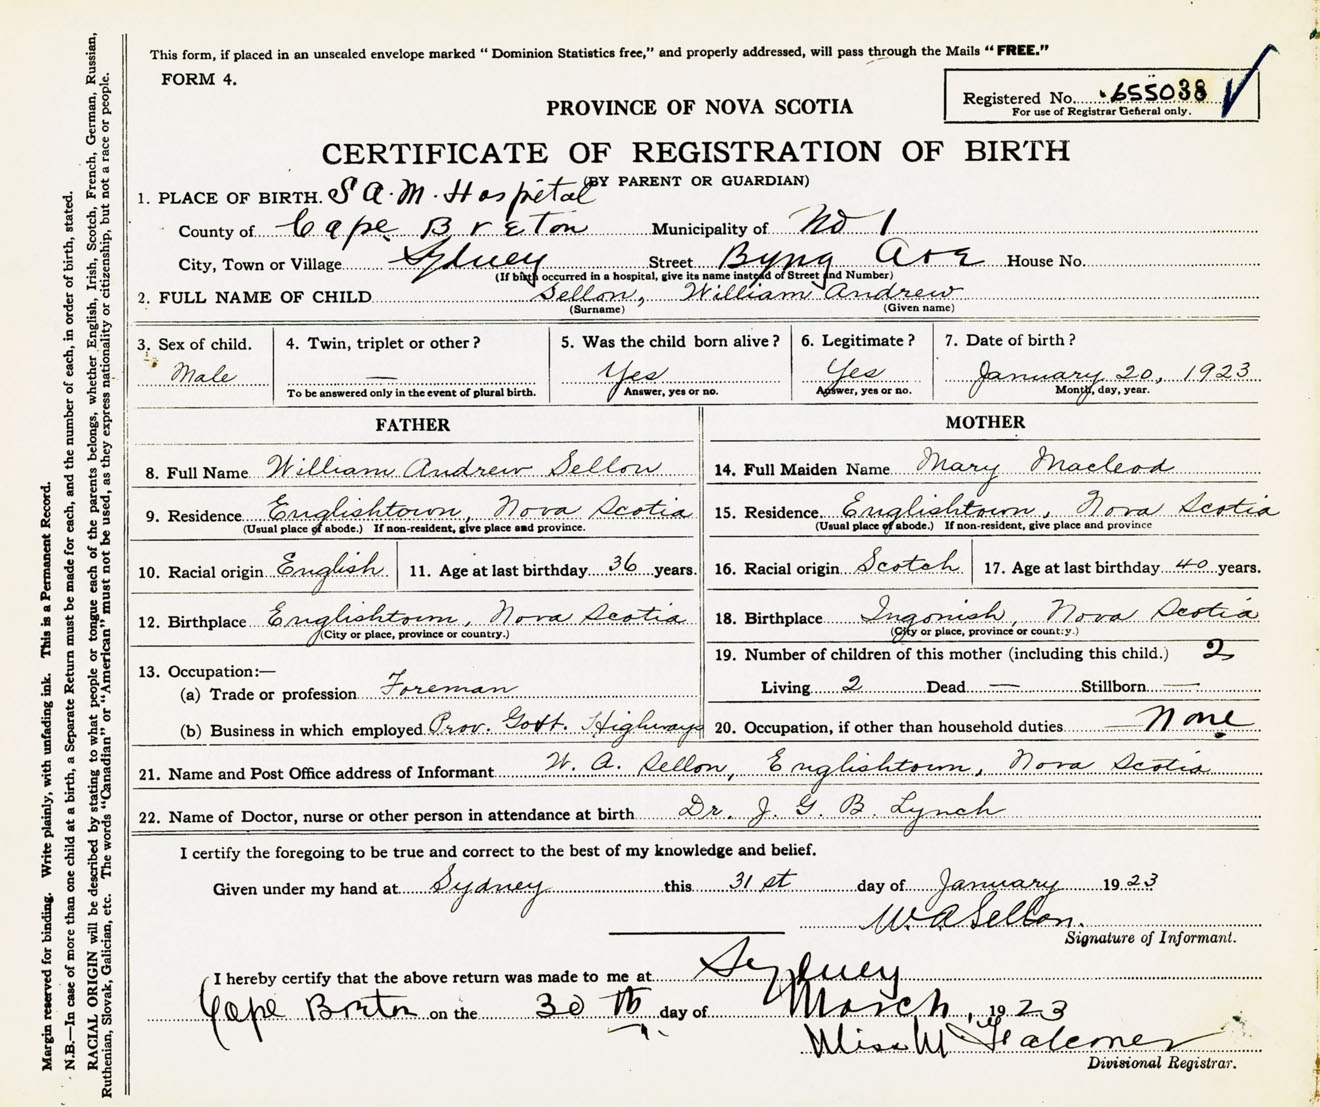 This form, if placed in an unsealed envelope marked “ Dominion Statistics free,” and properly addressed, will pass through the Mails “ FREE.”
FORM 4.
Registered No. 655038
For use of Registrar General only.
PROVINCE OF NOVA SCOTIA
CERTIFICATE OF REGISTRATION OF BIRTH
(BY PARENT OR GUARDIAN)
1. PLACE OF BIRTH. S A. M. Hospital
County of Cape Breton Municipality of No 1
City, Town or Village Sydney Street Byng Ave House No.
(If birth occurred in a hospital, give its name instead of Street and Number)
2. FULL NAME OF CHILD Sellon, William Andrew
(Surname) (Given name)
3. Sex of child. 4. Twin, triplet or other ? 5. Was the child born alive ? 6. Legitimate ? 7. Date of birth ?
Male — Yes Yes January 20, 1923
To be answered only in the event of plural birth. Answer, yes or no. Answer, yes or no. Month, day, year.
FATHER MOTHER
8. Full Name William Andrew Sellon 14. Full Maiden Name Mary Macleod
9. Residence Englishtown, Nova Scotia 15. Residence Englishtown, Nova Scotia
(Usual place of abode.) If non-resident, give place and province. (Usual place of abode.) If non-resident, give place and province
10. Racial origin English 11. Age at last birthday 36 years. 16. Racial origin Scotch 17. Age at last birthday 40 years.
12. Birthplace Englishtown, Nova Scotia 18. Birthplace Ingonish, Nova Scotia
(City or place, province or country.) (City or place, province or country.)
19. Number of children of this mother (including this child.) 2
13. Occupation:—
(a) Trade or profession Foreman Living 2 Dead — Stillborn —
(b) Business in which employed Prov. Govt. Highways 20. Occupation, if other than household duties None
21. Name and Post Office address of Informant W. A. Sellon, Englishtown, Nova Scotia
22. Name of Doctor, nurse or other person in attendance at birth Dr. J. G. B. Lynch
I certify the foregoing to be true and correct to the best of my knowledge and belief.
Given under my hand at Sydney this 31 st day of January 19 23
W. A Sellon.
Signature of Informant.
I hereby certify that the above return was made to me at Sydney
Cape Breton on the 30 th day of March, 19 23
Miss M Falconer
Divisional Registrar.
Margin reserved for binding. Write plainly, with unfading ink. This is a Permanent Record.
N.B.—In case of more than one child at a birth, a Separate Return must be made for each, and the number of each, in order of birth, stated.
RACIAL ORIGIN will be described by stating to what people or tongue each of the parents belongs, whether English, Irish, Scotch, French, German, Russian,
Ruthenian, Slovak, Galician, etc. The words “Canadian” or “American” must not be used, as they express nationality or citizenship, but not a race or people.